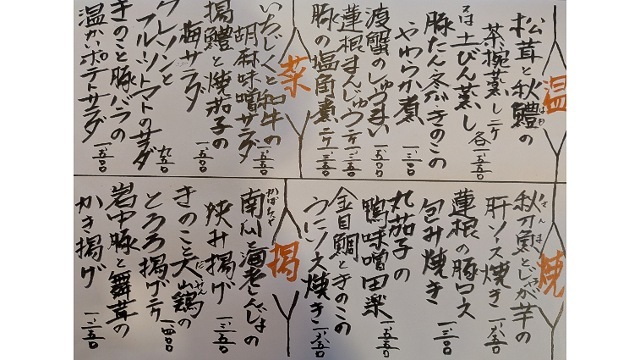 温
松茸と秋鱧の
茶椀蒸し二ケ
又は土びん蒸し 各一、八五〇
豚たん冬瓜きのこの
やわらか煮 一、一三〇
渡蟹のしゅうまい 一、五〇
蓮根まんじゅう二ケ 一、三五〇
豚の塩角煮二ケ 一、三五〇
菜
いちじくと和牛の
胡麻味噌サラダ 一、五〇〇
揚鱧と焼茄子の
梅サラダ 一、五〇
クレソンと
フルーツトマトのサラダ 九五〇
きのこと豚バラの
温かいポテトサラダ 一、二五〇
焼
秋刀魚とじゃが芋の
肝ソース焼き 一、二五〇
蓮根の豚ロース
包み焼き 一、二五〇
丸茄子の
鴨味噌田楽 一、二五〇
金目鯛ときのこの
うにソース焼き 一、八五〇
揚
かぼちゃ
南瓜と海老しんじょの
挟み揚げ 一、二五〇
きのこと大山鶏の
とろろ揚げ二ケ 一、一四〇
岩中豚と舞茸の
かき揚げ 一、二五〇